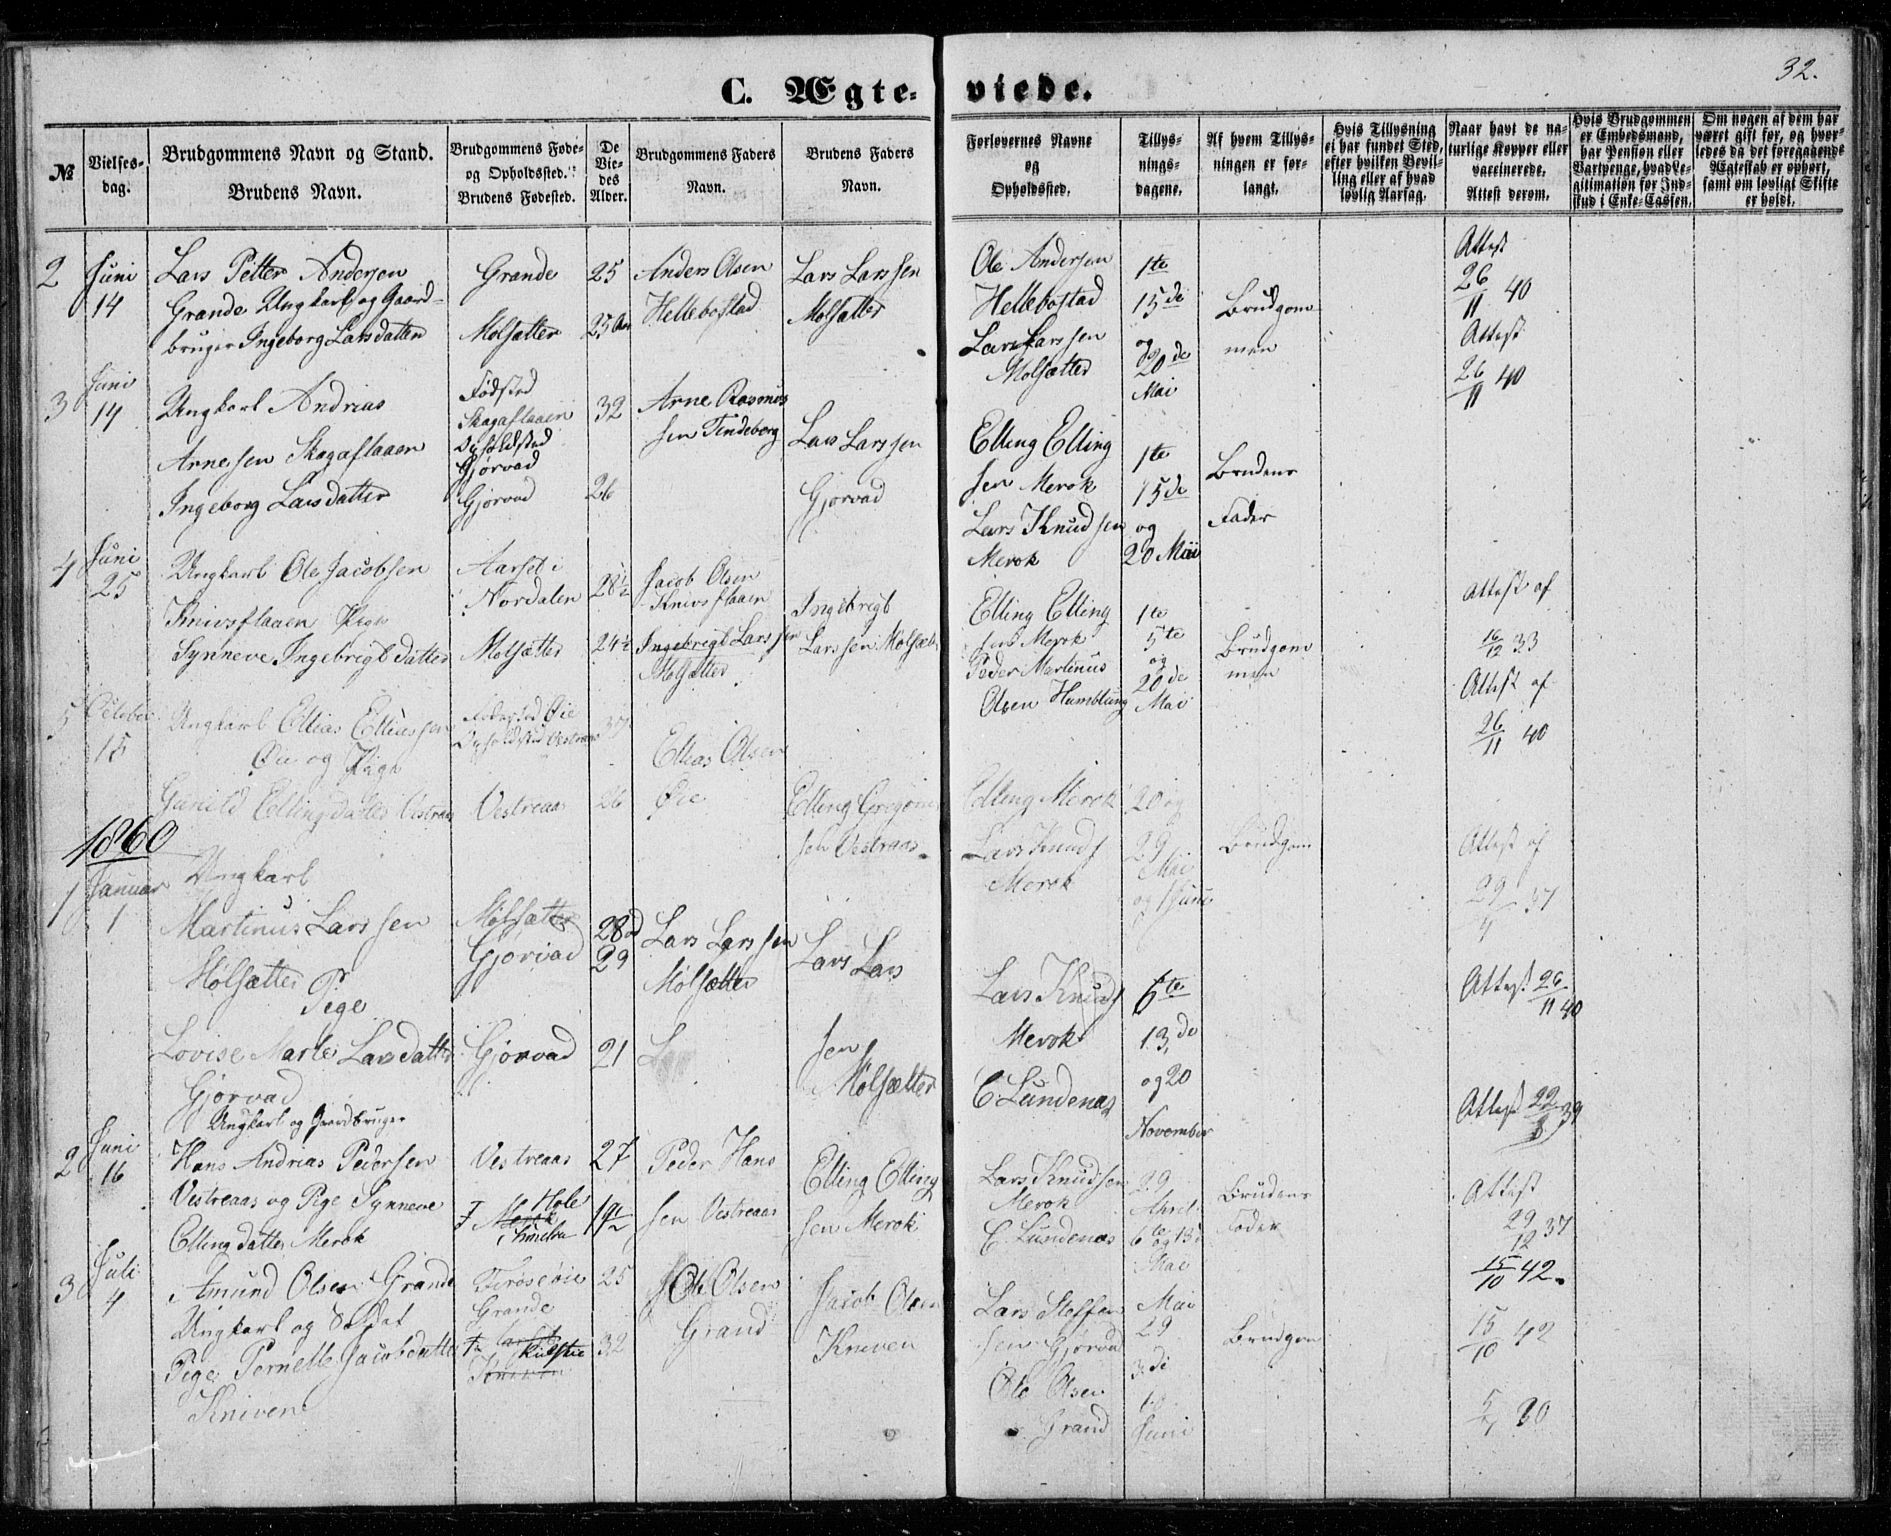 32.
C. Ægteviede.
№
Vielsesdag.
Brudgommens Navn og Stand.
Brudens Navn.
Brudgommens Føde-
og Opholdssted.
Brudens Fødested.
De
Vie-
des
Alder.
Brudgommens Faders
Navn.
Brudens Faders
Navn.
Forlovernes Navne
og
Opholdssted.
Tillys-
nings-
dagene.
Af hvem Tillys-
ningen er for-
langt.
Hvis Tillysning
ei har fundet Sted,
efter hvilken Bevil-
ling eller af hvad
lovlig Aarsag.
Naar havt de na-
turlige Kopper eller
vaccinerede.
Attest derom.
Hvis Brudgommen
er Embedsmand,
har Pension eller
Vartpenge, hvad Le-
gitimation for Ind-
skud i Enke-Cassen.
Om nogen af dem har
været gift før, og hvor-
ledes da det foregaaende
Ægteskab er ophørt,
samt om lovligt Skifte
er holdt.
2
Juni
14
Lars Petter Andersen
Grande Ungkarl og Gaard-
bruger Ingeborg Larsdatter
Grande
Molsætter
25
25
Anders Olsen
Hellebostad
Lars Larssen
Molsætter
Ole Andersen
Hellebostad
Lars Larssen
Molsætter
1te
15de
og
20de
Mai
Brudgom
men
Attest
26/11 40
Attest
26/11 40
3
Juni
14
Ungkarl Andrias
Arnessen Skagaflaaen
Ingeborg Larsdatter
Fødsted
Skagaflaaen
Opholdsted
Gjørvad
Gjørvad
32
26
Arne Rasmus
sen Tindeborg
Lars Larssen
Gjørvad
Elling Elling
sen Merok
Lars Knudsen
Merok
1te
15de
og
20 Mai
Brudens
Fader
4
Juni
25
Ungkarl Ole Jacobsen
Knivsflaaen Pige
Synneve Ingebrigtsdatter
Aarset i
Nordalen
Molsætter
28½
24½
Jacob Olsen
Knivsflaaen
Ingebrigt Larssen
Molsætter
Ingebrigt
Larssen Molsæt
Elling Elling
sen Merok
Peder Martinus
Olsen Humblung
1te
5te
og
20de
Mai
Brudgom
men
Attest af
16/12 33
Attest af
26/11 40
5
October
15
Ungkarl Ellias Elliassen
Øie og Pige
Gunild Ellingsdatter Vestraas
Fødested Øie
Opholdsted Vestraas
Vestreaas
37
26
Ellias Olsen
Øie
Elling Gregorius
sen Vestraas
Elling Merok
Lars Knuds
Merok
20 og
29
Mai
og 1 Juni
Brudgom
Attest af
29/4 37
1860
1
Januar
1
Ungkarl
Martinus Larssen
Molsætter
Pige
Lovise Marte Larsdatter
Gjørvad
Molsætter
Gjørvad
Gjørvad
28
29
21
Lars Larssen
Molsætter
Lars Lars
sen
Molsætter
Lars Knuds
Merok
E. Lundenæs
6te
13de
og 20
November
Attest 26/11 40
Attest 22/8 39
2
Juni
16
Ungkarl og Gaardbruger
Hans Andrias Pedersen
Vestreaas og Pige Synneve
Ellingsdatter Merok
Vestreaas
Hole
Merok
27
19½
Peder Hans
sen Vestreaas
Elling Elling
sen Merok
Lars Knudsen
Merok
E. Lundenæs
29
April
6te og 13d
Mai
Brudens
Fader
Attest
29/12 37
15/10 42.
3
Juli
4
Amund Olsen Grande
Ungkarl og Soldat
Pige Pernelle Jacobsdatter
Kniven
Grande
25
32
Ole Olsen
Grand
Jacob Olsen
Kniven
Lars Steffen
sen Gjørvad
Ole Olsen
Grand
Mai
29
3de
10
Juni
Brudgom
15/10 42
5/7 30